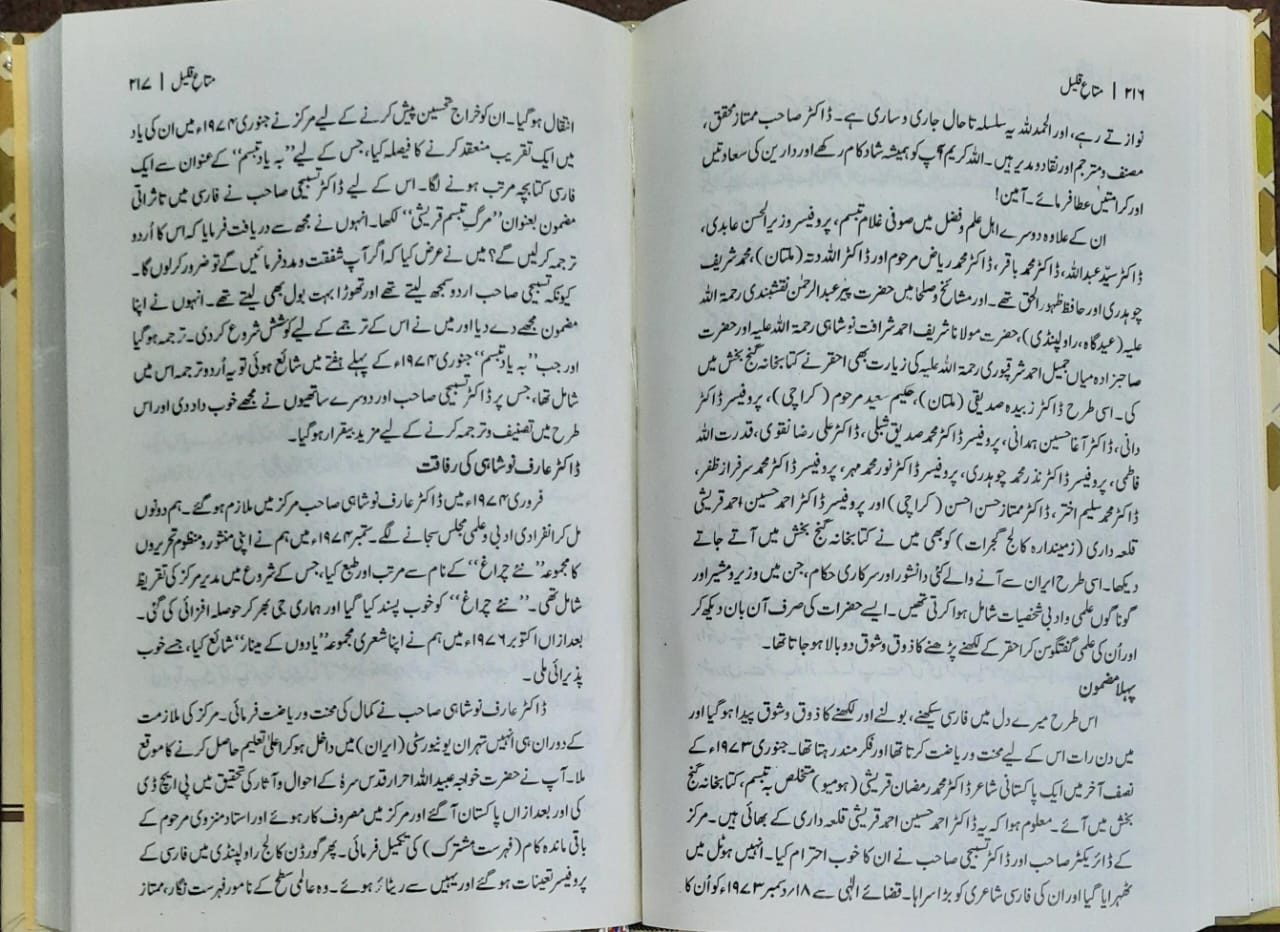 ۲۱۶ | متاعِ قلیل
نوازتے رہے، اور الحمدللہ یہ سلسلہ تا حال جاری و ساری ہے۔ ڈاکٹر صاحب ممتاز محقق،
مصنف و مترجم اور نقاد و مدیر ہیں۔ اللہ کریم آپ کو ہمیشہ شاد کام رکھے اور دارین کی سعادتیں
اور کرامتیں عطا فرمائے۔ آمین!
ان کے علاوہ دوسرے اہل علم و فضل میں صوفی غلام تبسم، پروفیسر وزیر الحسن عابدی،
ڈاکٹر سیّد عبداللہ، ڈاکٹر محمد باقر، ڈاکٹر محمد ریاض مرحوم اور ڈاکٹر اللہ دتہ (ملتان)، محمد شریف
چوہدری اور حافظ ظہور الحق تھے۔ اور مشائخ و صلحا میں حضرت پیر عبدالرحمٰن نقشبندی رحمۃ اللہ
علیہ (عیدگاہ، راولپنڈی)، حضرت مولانا شریف احمد شرافت نوشاہی رحمۃ اللہ علیہ اور حضرت
صاحبزادہ میاں جمیل احمد شرقپوری رحمۃ اللہ علیہ کی زیارت بھی احقر نے کتابخانہ گنج بخش میں
کی۔ اسی طرح ڈاکٹر زبیدہ صدیقی (ملتان)، حکیم سعید مرحوم (کراچی)، پروفیسر ڈاکٹر
دانی، ڈاکٹر آغا حسین ہمدانی، پروفیسر ڈاکٹر محمد صدیق شبلی، ڈاکٹر علی رضا نقوی، قدرت اللہ
فاطمی، پروفیسر ڈاکٹر نذر محمد چوہدری، پروفیسر ڈاکٹر نور محمد مہر، پروفیسر ڈاکٹر محمد سرفراز ظفر،
ڈاکٹر محمد سلیم اختر، ڈاکٹر ممتاز حسن احسن (کراچی) اور پروفیسر ڈاکٹر احمد حسین احمد قریشی
قلعہ داری (زمیندارہ کالج گجرات) کو بھی میں نے کتابخانہ گنج بخش میں آتے جاتے
دیکھا۔ اسی طرح ایران سے آنے والے کئی دانشور اور سرکاری حکام، جن میں وزیر و مشیر اور
گوناگوں علمی و ادبی شخصیات شامل ہوا کرتی تھیں۔ ایسے حضرات کی صرف آن بان دیکھ کر
اور اُن کی علمی گفتگو سن کر احقر کے لکھنے پڑھنے کا ذوق و شوق دوبالا ہو جاتا تھا۔
پہلا مضمون
اس طرح میرے دل میں فارسی سیکھنے، بولنے اور لکھنے کا ذوق و شوق پیدا ہو گیا اور
میں دن رات اس کے لیے محنت و ریاضت کرتا تھا اور فکر مند رہتا تھا۔ جنوری ۱۹۷۳ء کے
نصف آخر میں ایک پاکستانی شاعر ڈاکٹر محمد رمضان قریشی (ہومیو) متخلص بہ تبسم، کتابخانہ گنج
بخش میں آئے۔ معلوم ہوا کہ یہ ڈاکٹر احمد حسین احمد قریشی قلعہ داری کے بھائی ہیں۔ مرکز
کے ڈائریکٹر صاحب اور ڈاکٹر تسبیحی صاحب نے ان کا خوب احترام کیا۔ انہیں ہوٹل میں
ٹھہرایا گیا اور ان کی فارسی شاعری کو بڑا سراہا۔ قضائے الٰہی سے ۱۸/دسمبر ۱۹۷۳ء کو اُن کا
متاعِ قلیل | ۲۱۷
انتقال ہو گیا۔ ان کو خراج تحسین پیش کرنے کے لیے مرکز نے جنوری ۱۹۷۴ء میں ان کی یاد
میں ایک تقریب منعقد کرنے کا فیصلہ کیا، جس کے لیے "بہ یاد تبسم" کے عنوان سے ایک
فارسی کتابچہ مرتب ہونے لگا۔ اس کے لیے ڈاکٹر تسبیحی صاحب نے فارسی میں تاثراتی
مضمون بعنوان "مرگِ تبسم قریشی" لکھا۔ انہوں نے مجھ سے دریافت فرمایا کہ اس کا اُردو
ترجمہ کر لیں گے؟ میں نے عرض کیا کہ اگر آپ شفقت و مدد فرمائیں گے تو ضرور کر لوں گا۔
کیونکہ تسبیحی صاحب اردو سمجھ لیتے تھے اور تھوڑا بہت بول بھی لیتے تھے۔ انہوں نے اپنا
مضمون مجھے دے دیا اور میں نے اس کے ترجمے کے لیے کوشش شروع کر دی۔ ترجمہ ہو گیا
اور جب "بہ یاد تبسم" جنوری ۱۹۷۴ء کے پہلے ہفتے میں شائع ہوئی تو یہ اُردو ترجمہ اس میں
شامل تھا، جس پر ڈاکٹر تسبیحی صاحب اور دوسرے ساتھیوں نے مجھے خوب داد دی اور اس
طرح میں تصنیف و ترجمہ کرنے کے لیے مزید بیقرار ہو گیا۔
ڈاکٹر عارف نوشاہی کی رفاقت
فروری ۱۹۷۴ء میں ڈاکٹر عارف نوشاہی صاحب مرکز میں ملازم ہو گئے۔ ہم دونوں
مل کر انفرادی ادبی و علمی مجلس سجانے لگے۔ ستمبر ۱۹۷۴ء میں ہم نے اپنی منثور و منظوم تحریروں
کا مجموعہ "نئے چراغ" کے نام سے مرتب اور طبع کیا، جس کے شروع میں مدیر مرکز کی تقریظ
شامل تھی۔ "نئے چراغ" کو خوب پسند کیا گیا اور ہماری جی بھر کر حوصلہ افزائی کی گئی۔
بعد ازاں اکتوبر ۱۹۷۶ء میں ہم نے اپنا شعری مجموعہ "یادوں کے مینار" شائع کیا، جسے خوب
پذیرائی ملی۔
ڈاکٹر عارف نوشاہی صاحب نے کمال کی محنت و ریاضت فرمائی۔ مرکز کی ملازمت
کے دوران ہی انہیں تہران یونیورسٹی (ایران) میں داخل ہو کر اعلیٰ تعلیم حاصل کرنے کا موقع
ملا۔ آپ نے حضرت خواجہ عبید اللہ احرار قدس سرہٗ کے احوال و آثار کی تحقیق میں پی ایچ ڈی
کی اور بعد ازاں پاکستان آ گئے اور مرکز میں مصروف کار ہوئے اور استاد منزوی مرحوم کے
باقی ماندہ کام (فہرست مشترک) کی تکمیل فرمائی۔ پھر گورڈن کالج راولپنڈی میں فارسی کے
پروفیسر تعینات ہو گئے اور یہیں سے ریٹائر ہوئے۔ وہ عالمی سطح کے نامور فہرست نگار، ممتاز